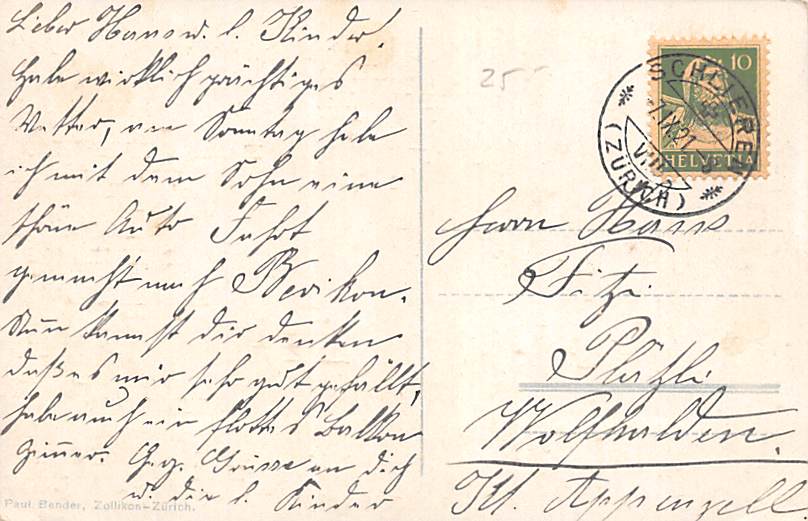 Lieber Hans u. l. Kinder!
Habe wirklich prächtiges
Wetter, am Sonntag habe
ich mit dem Sohn eine
schöne Auto Fahrt
gemacht nach Berikon.
Nun kannst dir denken
daß es mir sehr gut gefällt,
habe auch ein flottes Balkon
Zimmer. Grüsse an dich
u. die l. Kinder
Paul Bender, Zollikon-Zürich.
25
10
HELVETIA
SCHLIEREN
IX.21
(ZÜRICH)
Herrn Hans
Plätzli
Wolfhalden.
Kt. Appenzell.